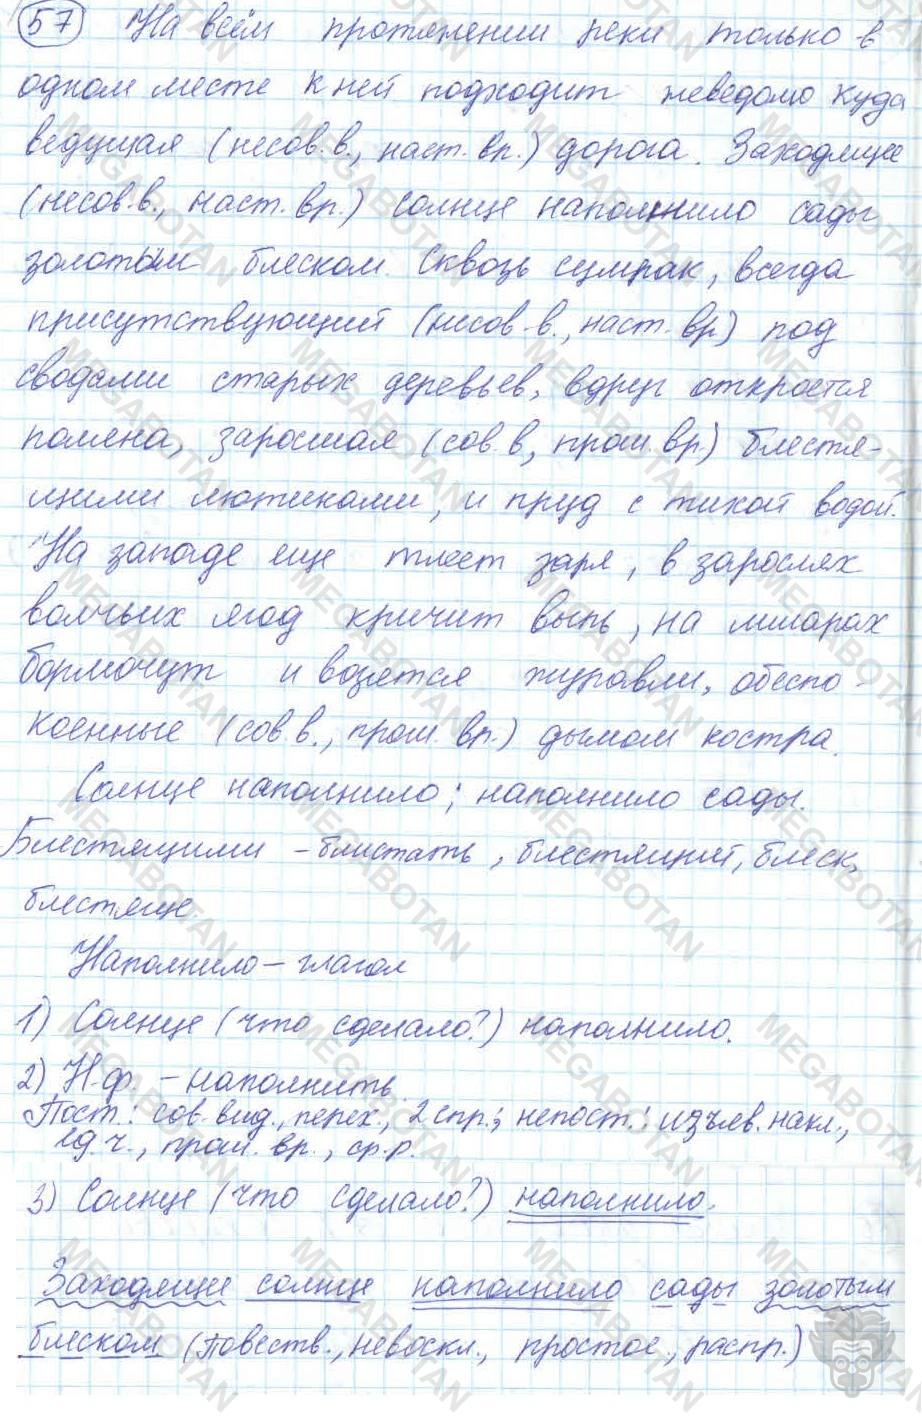 57 На всём протяжении реки только в
одном месте к ней подходит неведомо куда
ведущая (несов.в., наст.вр.) дорога. Заходящее
(несов.в., наст.вр.) солнце наполнило сады
золотым блеском. Сквозь сумрак, всегда
присутствующий (несов.в., наст.вр) под
сводами старых деревьев, вдруг откроется
поляна, заросшая (сов.в, прош.вр) блестя-
щими лютиками, и пруд с тихой водой.
На западе еще тлеет заря, в зарослях
волчьих ягод кричит выпь, на мшарах
бормочут и возятся журавли, обеспо-
коенные (сов.в., прош. вр.) дымом костра.
Солнце наполнило; наполнило сады.
Блестящими - блистать, блестящий, блеск,
блестяще.
Наполнило - глагол
1) Солнце (что сделало?) наполнило.
2) Н.ф. - наполнить.
Пост.: сов.вид., перех., 2 спр.; непост.: изъяв.накл.,
ед.ч., прош. вр., ср.р.
3) Солнце (что сделало?) наполнило.
Заходящее солнце наполнило сады золотым
блеском (Повеств., невоскл., простое, распр.)
MEGABOTAN